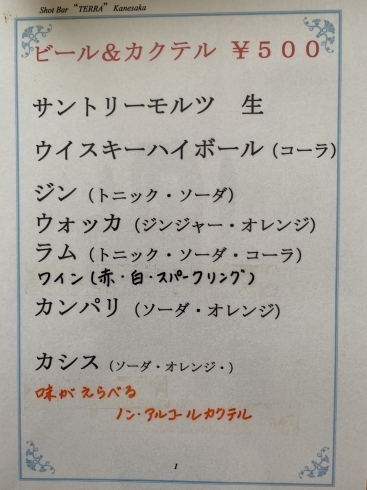 Shot Bar “TERRA” Kanesaka
ビール＆カクテル ￥５００
サントリーモルツ 生
ウイスキーハイボール（コーラ）
ジン（トニック・ソーダ）
ウォッカ（ジンジャー・オレンジ）
ラム（トニック・ソーダ・コーラ）
ワイン（赤・白・スパークリング）
カンパリ（ソーダ・オレンジ）
カシス（ソーダ・オレンジ・）
味がえらべる
ノン・アルコールカクテル
1